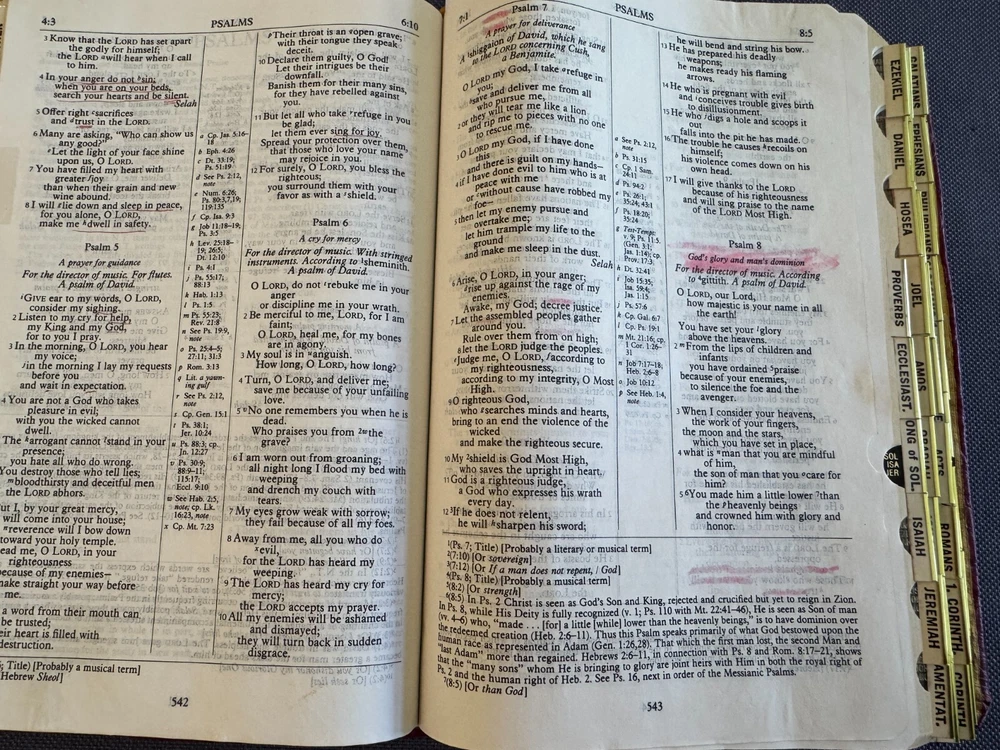 4:3
PSALMS
6:10
3 Know that the LORD has set apart
the godly for himself;
the LORD will hear when I call
to him.
4 In your anger do not sin;
when you are on your beds,
search your hearts and be silent.
Selah
5 Offer right sacrifices
and trust in the LORD.
6 Many are asking, "Who can show us
any good?"
Let the light of your face shine
upon us, O LORD.
7 You have filled my heart with
greater joy
than when their grain and new
wine abound.
8 I will lie down and sleep in peace,
for you alone, O LORD,
make me dwell in safety.
Psalm 5
A prayer for guidance
For the director of music. For flutes.
A psalm of David.
1 Give ear to my words, O LORD,
consider my sighing.
2 Listen to my cry for help,
my King and my God,
for to you I pray.
3 In the morning, O LORD, you hear
my voice;
in the morning I lay my requests
before you
and wait in expectation.
4 You are not a God who takes
pleasure in evil;
with you the wicked cannot
dwell.
The arrogant cannot stand in your
presence;
you hate all who do wrong.
You destroy those who tell lies;
bloodthirsty and deceitful men
the LORD abhors.
ut I, by your great mercy,
will come into your house;
reverence will I bow down
toward your holy temple.
ead me, O LORD, in your
righteousness
because of my enemies—
make straight your way before
me.
a word from their mouth can
be trusted;
eir heart is filled with
destruction.
; Title) [Probably a musical term]
Hebrew Sheol]
a Cp. Jas. 5:16-18
b Eph. 4:26
c Dt. 33:19;
Ps. 51:19
d See Ps. 2:12,
note
e Num. 6:26;
Ps. 80:3,7,19;
119:135
f Cp. Isa. 9:3
g Job 11:18-19;
Ps. 3:5
h Lev. 25:18-
19; 26:5;
Dt. 12:10
i Ps. 4:1
j Ps. 55:17;
88:13
k Hab. 1:13
l Ps. 1:5
m Ps. 55:23;
Rev. 21:8
n See Ps. 19:9,
note
o Ps. 25:4-5;
27:11; 31:3
p Rom. 3:13
q Lit. a yawn-
ing gulf
r See Ps. 2:12,
note
s Cp. Gen. 15:1
t Ps. 38:1;
Jer. 10:24
u Ps. 88:3; cp.
Jn. 12:27
v Ps. 30:9;
88:9-11;
115:17;
Eccl. 9:10
w See Hab. 2:5,
note; cp. Lk.
16:23, note
x Cp. Mt. 7:23
Their throat is an open grave;
with their tongue they speak
deceit.
10 Declare them guilty, O God!
Let their intrigues be their
downfall.
Banish them for their many sins,
for they have rebelled against
you.
11 But let all who take refuge in you
be glad;
let them ever sing for joy.
Spread your protection over them,
that those who love your name
may rejoice in you.
12 For surely, O LORD, you bless the
righteous;
you surround them with your
favor as with a shield.
Psalm 6
A cry for mercy
For the director of music. With stringed
instruments. According to sheminith.
A psalm of David.
O LORD, do not rebuke me in your
anger
or discipline me in your wrath.
2 Be merciful to me, LORD, for I am
faint;
O LORD, heal me, for my bones
are in agony.
3 My soul is in anguish.
How long, O LORD, how long?
4 Turn, O LORD, and deliver me;
save me because of your unfailing
love.
5 No one remembers you when he is
dead.
Who praises you from the
grave?
6 I am worn out from groaning;
all night long I flood my bed with
weeping
and drench my couch with
tears.
7 My eyes grow weak with sorrow;
they fail because of all my foes.
8 Away from me, all you who do
evil,
for the LORD has heard my
weeping.
9 The LORD has heard my cry for
mercy;
the LORD accepts my prayer.
10 All my enemies will be ashamed
and dismayed;
they will turn back in sudden
disgrace.
542
7:1
PSALMS
8:5
Psalm 7
A prayer for deliverance
A shiggaion of David, which he sang
to the LORD concerning Cush,
a Benjamite.
O LORD my God, I take refuge in
you;
save and deliver me from all
who pursue me,
2 or they will tear me like a lion
and rip me to pieces with no one
to rescue me.
3 O LORD my God, if I have done
this
and there is guilt on my hands—
4 if I have done evil to him who is at
peace with me
or without cause have robbed my
foe—
5 then let my enemy pursue and
overtake me;
let him trample my life to the
ground
and make me sleep in the dust.
Selah
6 Arise, O LORD, in your anger;
rise up against the rage of my
enemies.
Awake, my God; decree justice.
7 Let the assembled peoples gather
around you.
Rule over them from on high;
8 let the LORD judge the peoples.
Judge me, O LORD, according to
my righteousness,
according to my integrity, O Most
High.
9 O righteous God,
who searches minds and hearts,
bring to an end the violence of the
wicked
and make the righteous secure.
10 My shield is God Most High,
who saves the upright in heart.
11 God is a righteous judge,
a God who expresses his wrath
every day.
12 If he does not relent,
he will sharpen his sword;
a See Ps. 2:12,
note
b Ps. 31:15
c Cp. 1 Sam.
24:11
d Ps. 94:2
e Ps. 26:1;
35:24; 43:1
f Ps. 18:20;
35:24
g Test-Tempt:
v. 9; Ps. 11:5.
(Gen. 3:1;
Jas. 1:14); cp.
Prov. 17:3
h Dt. 32:41
i Job 15:35;
Isa. 59:4;
Jas. 1:15
j Ps. 57:6
k Cp. Gal. 6:7
l Cp. Ps. 19:1
m Mt. 21:16; cp.
1 Cor. 1:26-
31
n Job 7:17-18;
Heb. 2:6-8
o Job 10:12
p See Heb. 1:4,
note
he will bend and string his bow.
13 He has prepared his deadly
weapons;
he makes ready his flaming
arrows.
14 He who is pregnant with evil
and conceives trouble gives birth
to disillusionment.
15 He who digs a hole and scoops it
out
falls into the pit he has made.
16 The trouble he causes recoils on
himself;
his violence comes down on his
own head.
17 I will give thanks to the LORD
because of his righteousness
and will sing praise to the name
of the LORD Most High.
Psalm 8
God's glory and man's dominion
For the director of music. According
to gittith. A psalm of David.
O LORD, our Lord,
how majestic is your name in all
the earth!
You have set your glory
above the heavens.
2 From the lips of children and
infants
you have ordained praise
because of your enemies,
to silence the foe and the
avenger.
3 When I consider your heavens,
the work of your fingers,
the moon and the stars,
which you have set in place,
4 what is man that you are mindful
of him,
the son of man that you care for
him?
5 You made him a little lower than
the heavenly beings
and crowned him with glory and
honor.
1(Ps. 7; Title) [Probably a literary or musical term]
2(7:10) [Or sovereign]
3(7:12) [Or If a man does not repent, / God]
4(Ps. 8; Title) [Probably a musical term]
5(8:2) [Or strength]
6(8:5) In Ps. 2 Christ is seen as God's Son and King, rejected and crucified but yet to reign in Zion.
In Ps. 8, while His Deity is fully recognized (v. 1; Ps. 110 with Mt. 22:41-46), He is seen as Son of man
(vv. 4-6) who, "made . . . [for] a little [while] lower than the heavenly beings," is to have dominion over
the redeemed creation (Heb. 2:6-11). Thus this Psalm speaks primarily of what God bestowed upon the
human race as represented in Adam (Gen. 1:26,28). That which the first man lost, the second Man and
"last Adam" more than regained. Hebrews 2:6-11, in connection with Ps. 8 and Rom. 8:17-21, shows
that the "many sons" whom He is bringing to glory are joint heirs with Him in both the royal right of
Ps. 2 and the human right of Heb. 2. See Ps. 16, next in order of the Messianic Psalms.
7(8:5) [Or than God]
543
EZEKIEL
DANIEL
HOSEA
JOEL
PROVERBS
AMOS
ECCLESIAST.
SONG of SOL.
SOL
ISA
JER
ISAIAH
JEREMIAH
LAMENTAT.
GALATIANS
EPHESIANS
ACTS
ROMANS
1 CORINTH.
CORINTH